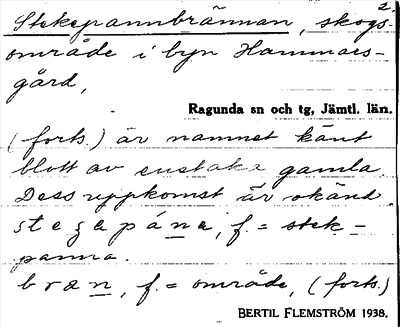 2.
Stekepannbrännan, skogs-
område i byn Hammars-
gård,
Ragunda sn och tg, Jämtl. län.
(forts.) är namnet känt
blott av enstaka gamla.
Dess uppkomst är okänd.
stegapána, f. = stek-
panna.
bræn, f. = område, (forts.)
BERTIL FLEMSTRÖM 1938.